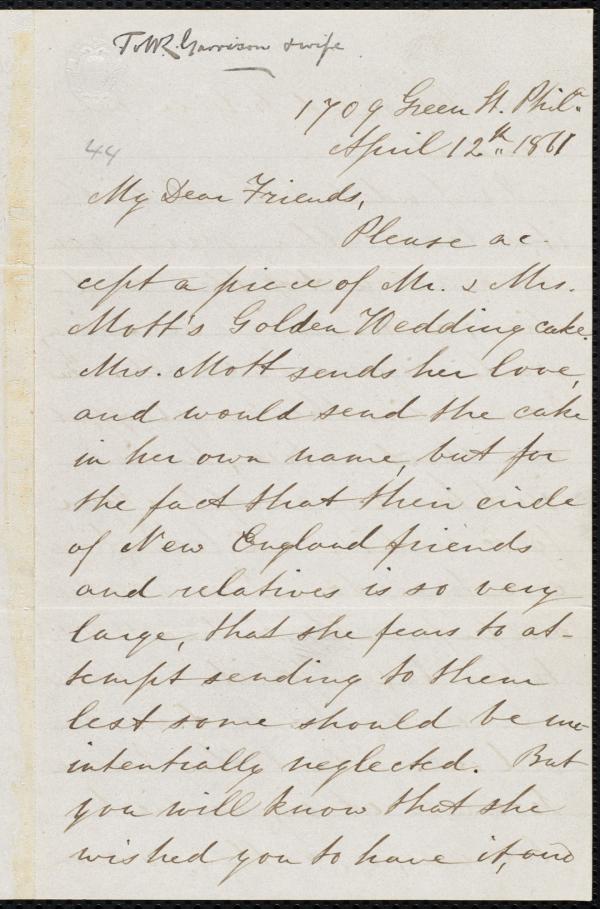 To W. L. Garrison & wife
1709 Green St. Phila.
April 12th. 1861
44
My Dear Friends,
Please ac-
cept a piece of Mr. & Mrs.
Mott's Golden Wedding cake.
Mrs. Mott sends her love,
and would send the cake
in her own name, but for
the fact that their circle
of New England friends
and relatives is so very
large, that she fears to at-
tempt sending to them
lest some should be un-
intentially neglected. But
you will know that she
wished you to have it, and